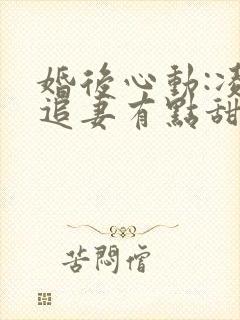 婚後心動:凌
追妻有點甜
苦悶僧